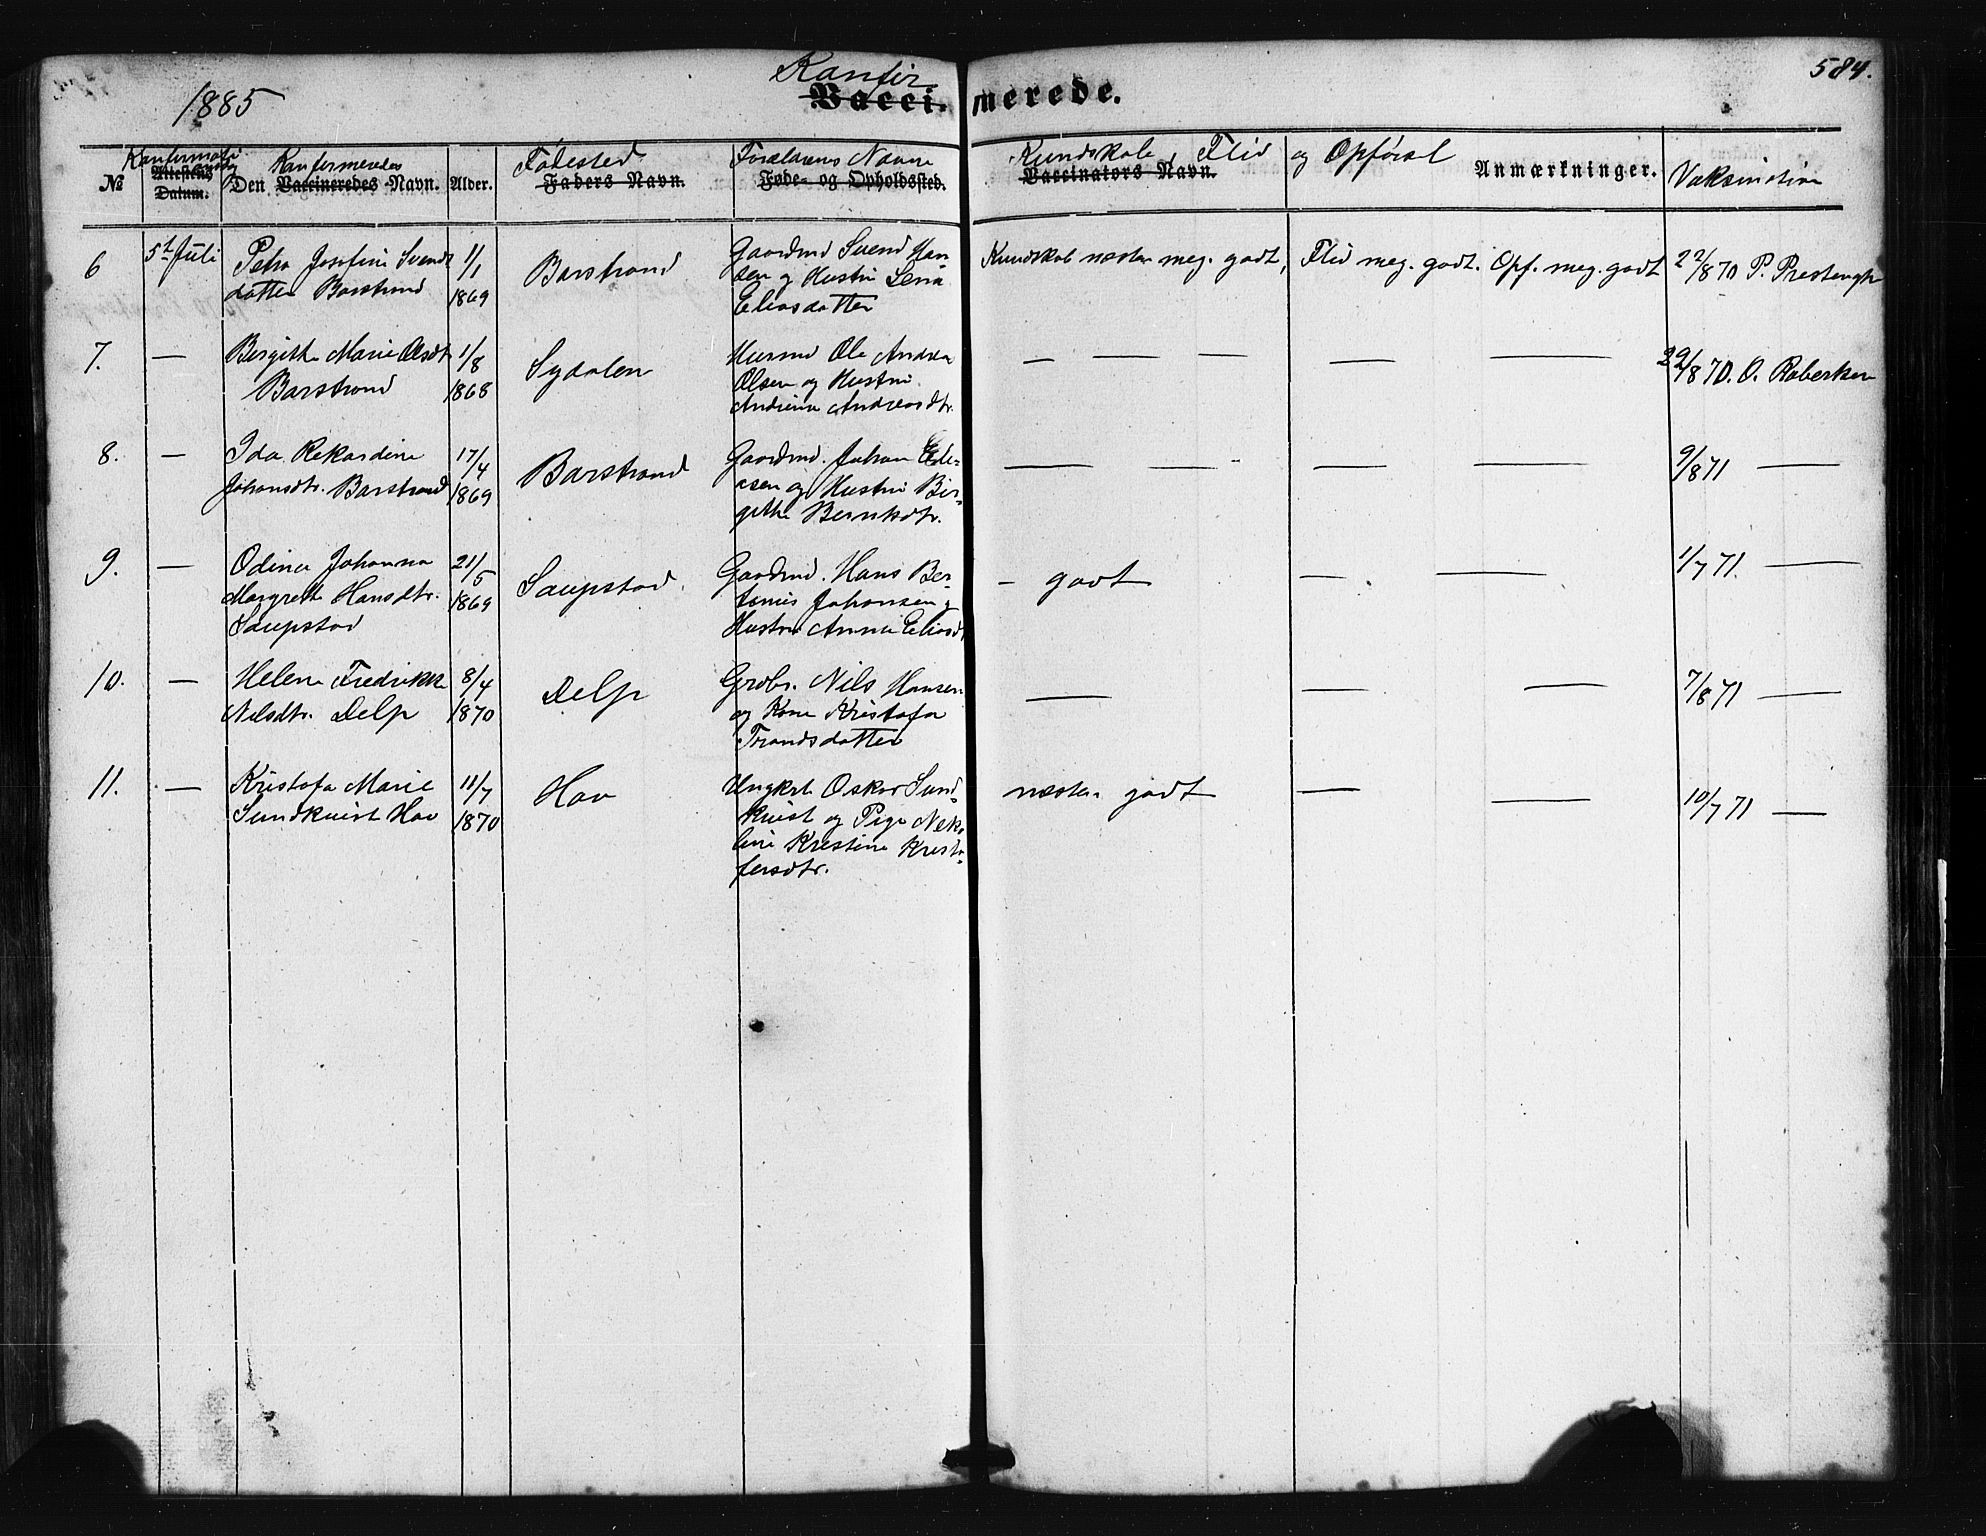 584.
1885
Konfir-
Vacci- merede.
Konfirmati-
Attestens
Datum.
№
Konfirmeredes
Den Vaccineredes Navn.
Alder.
Fødested
Faders Navn.
Forældrens Navne
Føde- og Opholdssted.
Kundskab, Flid og Opførsel
Vaccinators Navn.
Anmærkninger.
Vaksination
6 5t Juli Petra Josefine Svends- 1/1 Barstrand Gaardmd Svend Han- Kundskab næsten meg. godt, Flid meg. godt. Opf. meg. godt 22/8 70 P.
datter Barstrand 1869 sen og Hustru Lena
Eliasdatter
7. — Bergithe Marie Olsdtr 1/8 Sydalen Husmd Ole Andrea — — — — — 29/8 70. O. Robertsen
Barstrand 1868 Olsen og Hustru
Andrina Andreasdtr.
8. — Ida Rikardine 17/4 Barstrand Gaardmd. Johan — — - — — 9/8 71 —
Johansdtr. Barstrand 1869 sen og Hustru Bir-
githe Berntsdtr.
9. — Odina Johanna 21/5 Saupstad Gaardmd. Hans Ber- - godt — — 1/7 71. —
Margrethe Hansdtr. 1869 tinus Johansen og
Saupstad Hustru Anna Eliasdt
10. — Helena Fredrikke 8/4 Delp Grdbr. Nils Hansen — — — 7/8 71 —
Nilsdtr. Delp 1870 og Kone Kristofa
Trondsdatter
11. — Kristofa Marie 11/7 Hov Ungkrl. Oskar Sund- næsten godt — — 10/7 71 —
Sundkvist Hov 1870 kvist og Pige Neko-
line Kristine Kristo-
fersdtr.